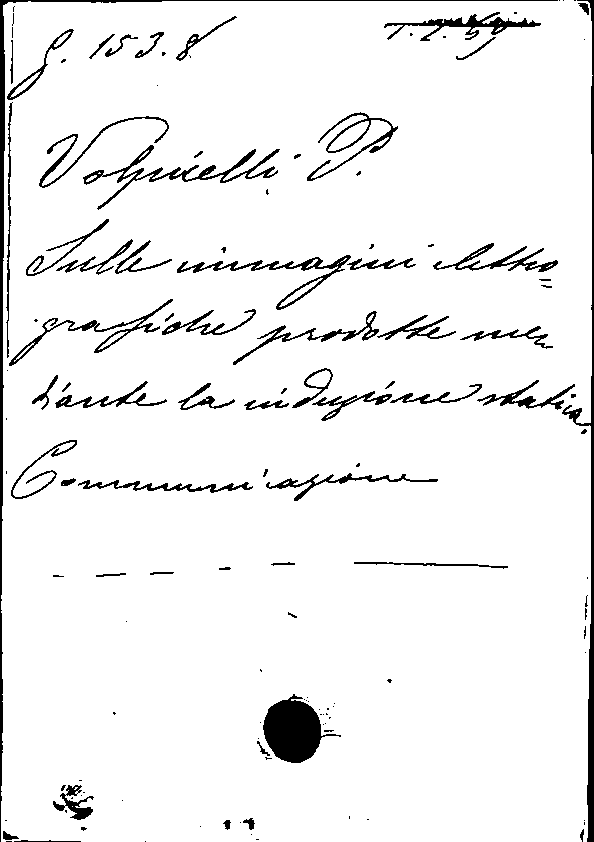 G. 153.8
Volpicelli P.
Sulle immagini elettro=
grafiche prodotte me
diante la induzione statica.
Communicazione